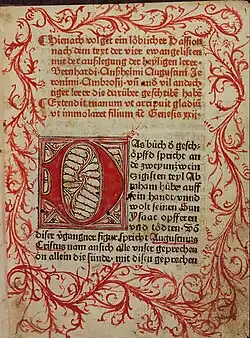 Hienach volget ein löblicher Passion
nach dem text der vier ewangelisten
mit der außlegung der heyligen lerer
Bernhardi Anßhelmi Augustini Je
ronimi Ambrosij vnd vil andech
tiger lerer die darüber geschribē habē
Extendit manum vt arripuit gladiū
vt immolaret filium ꝛc Genesis xxij
DAs büch d' gesch
öpff d spricht an
dē zweyunzwein
zigisten teyl Ab
raham hübe auff
sein hand, vnnd
wolt seinen Sun
ysaac opfferen
vnd tödten. võ
diser v'gangner figur spricht Augustinus
Cristus nam ansich alle vnser geprechen
on allein die sünde. mit disen geprechen